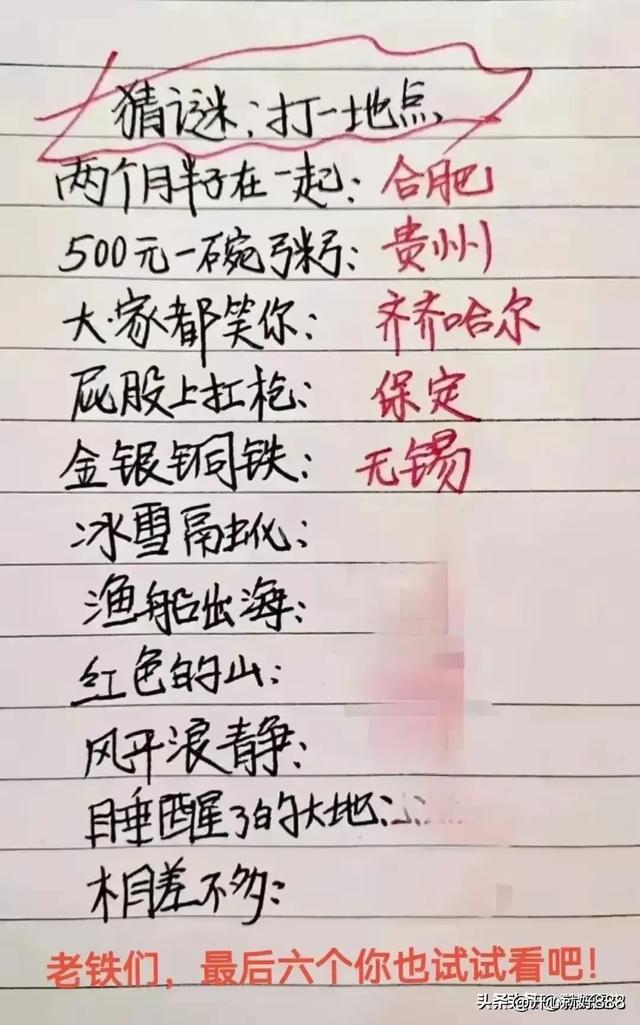 猜谜:打一地点
两个胖子在一起: 合肥
500元一碗粥: 贵州
大家都笑你: 齐齐哈尔
屁股上扛枪: 保定
金银铜铁: 无锡
冰雪融化:
渔船出海:
红色的山:
风平浪静:
睡醒了的大地:
相差不多:
老铁们，最后六个你也试试看吧！
头条 @开心就好888